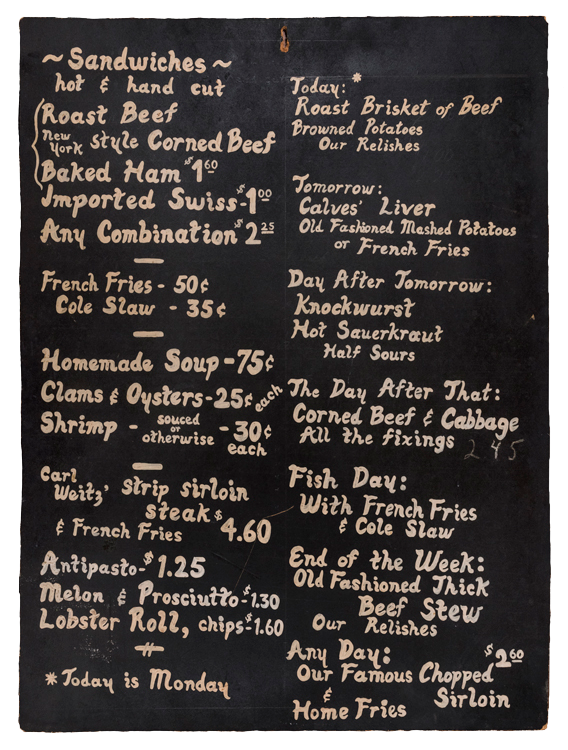 ~ Sandwiches ~
hot & hand cut
Roast Beef
New York Style Corned Beef
Baked Ham $1 60
Imported Swiss - $1 00
Any Combination $2 25
French Fries - 50¢
Cole Slaw - 35¢
Homemade Soup - 75¢
Clams & Oysters - 25¢ each
Shrimp - souced or otherwise - 30¢ each
Carl Weitz' strip sirloin
steak $4.60
& French Fries
Antipasto - $1.25
Melon & Prosciutto - $1.30
Lobster Roll, chips - $1.60
*Today is Monday
Today: *
Roast Brisket of Beef
Browned Potatoes
Our Relishes
Tomorrow:
Calves' Liver
Old Fashioned Mashed Potatoes
or French Fries
Day After Tomorrow:
Knockwurst
Hot Sauerkraut
Half Sours
The Day After That:
Corned Beef & Cabbage
All the fixings 2 45
Fish Day:
With French Fries
& Cole Slaw
End of the Week:
Old Fashioned Thick
Beef Stew
Our Relishes
Any Day: $2 60
Our Famous Chopped
Sirloin
&
Home Fries